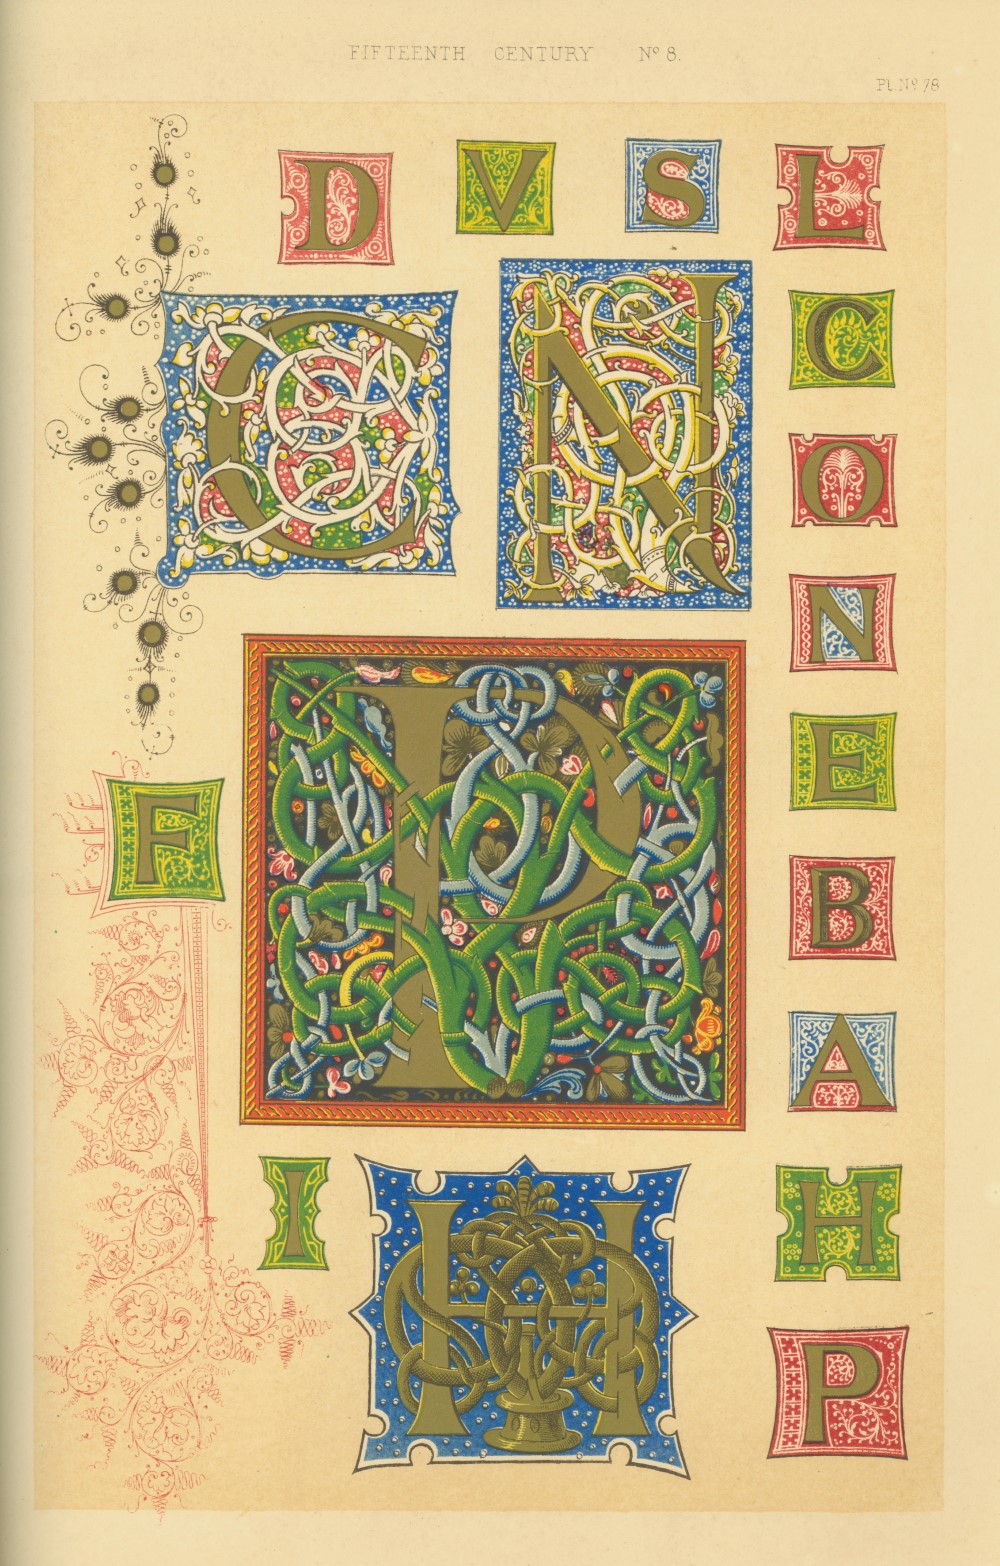 FIFTEENTH CENTURY Nº 8.
Pl. Nº 78
D V S L
C N
C
O
N
E
F
P
B
A
I H H
P